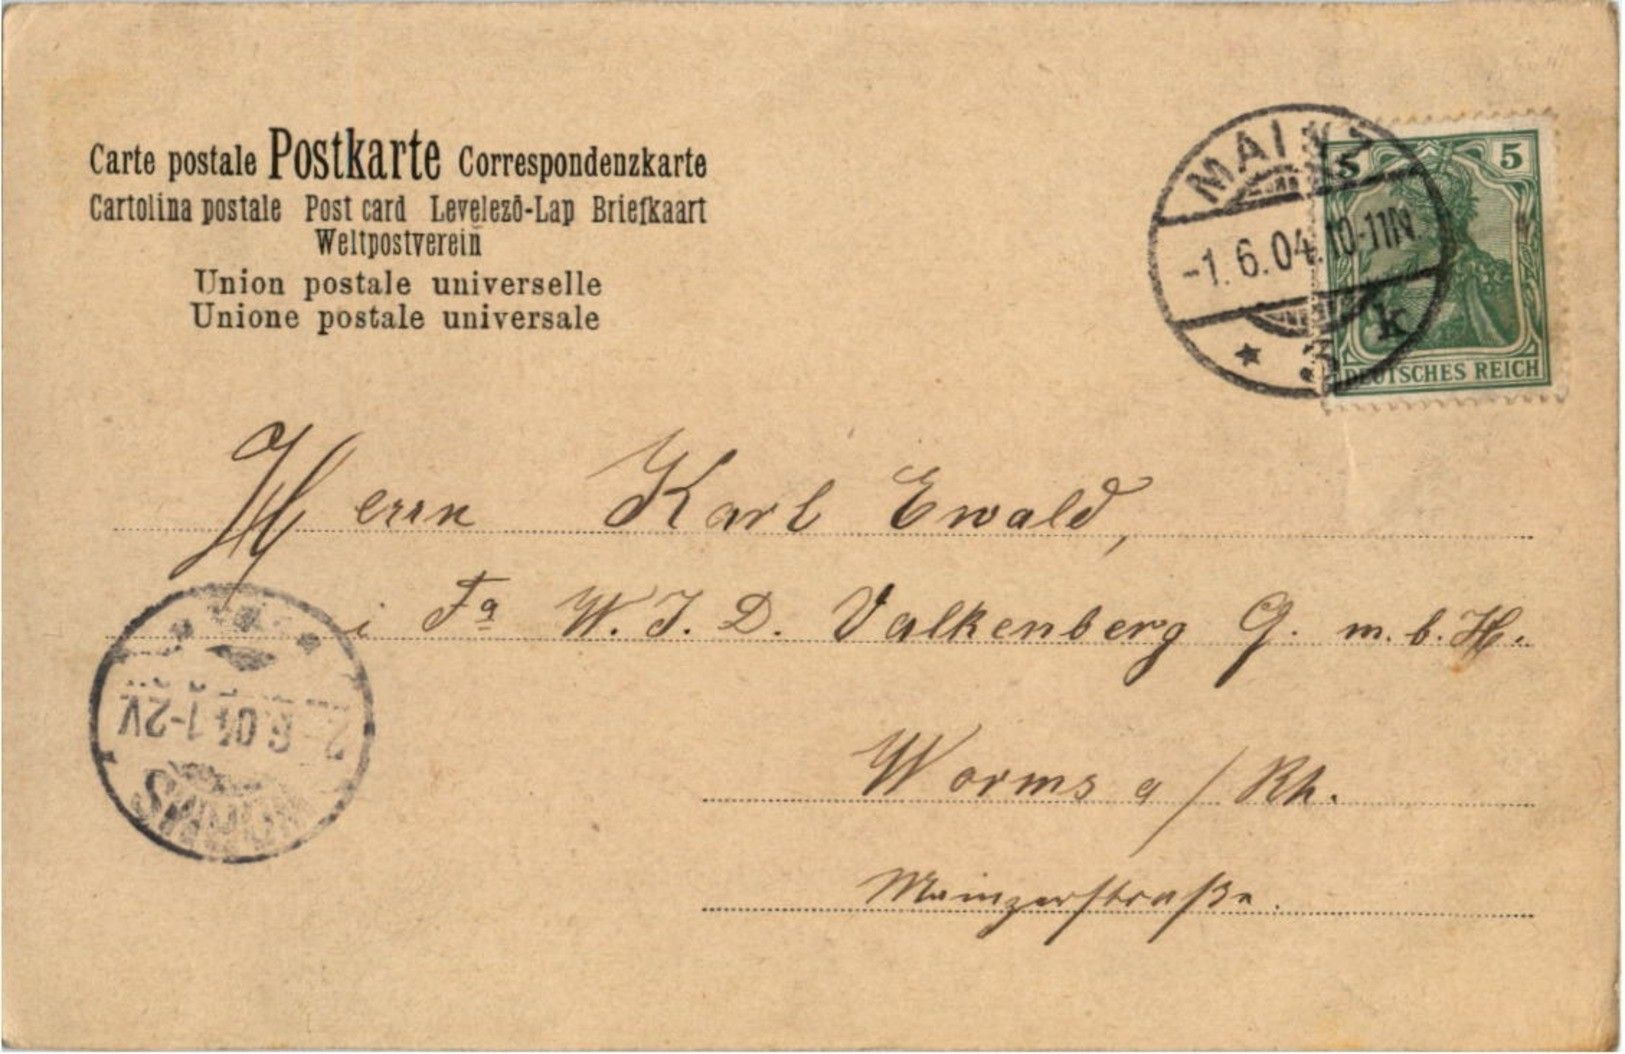 Carte postale Postkarte Correspondenzkarte
Cartolina postale Post card Levelezõ-Lap Briefkaart
Weltpostverein
Union postale universelle
Unione postale universale
MAINZ
-1.6.04.10-11N.
* 3 k
5 5
DEUTSCHES REICH
Herrn Karl Ewald,
i Fa W. J. D. Valkenberg G. m. b. H.
Worms a/Rh.
Mainzerstraße.
WORMS
2.6.04 1-2V